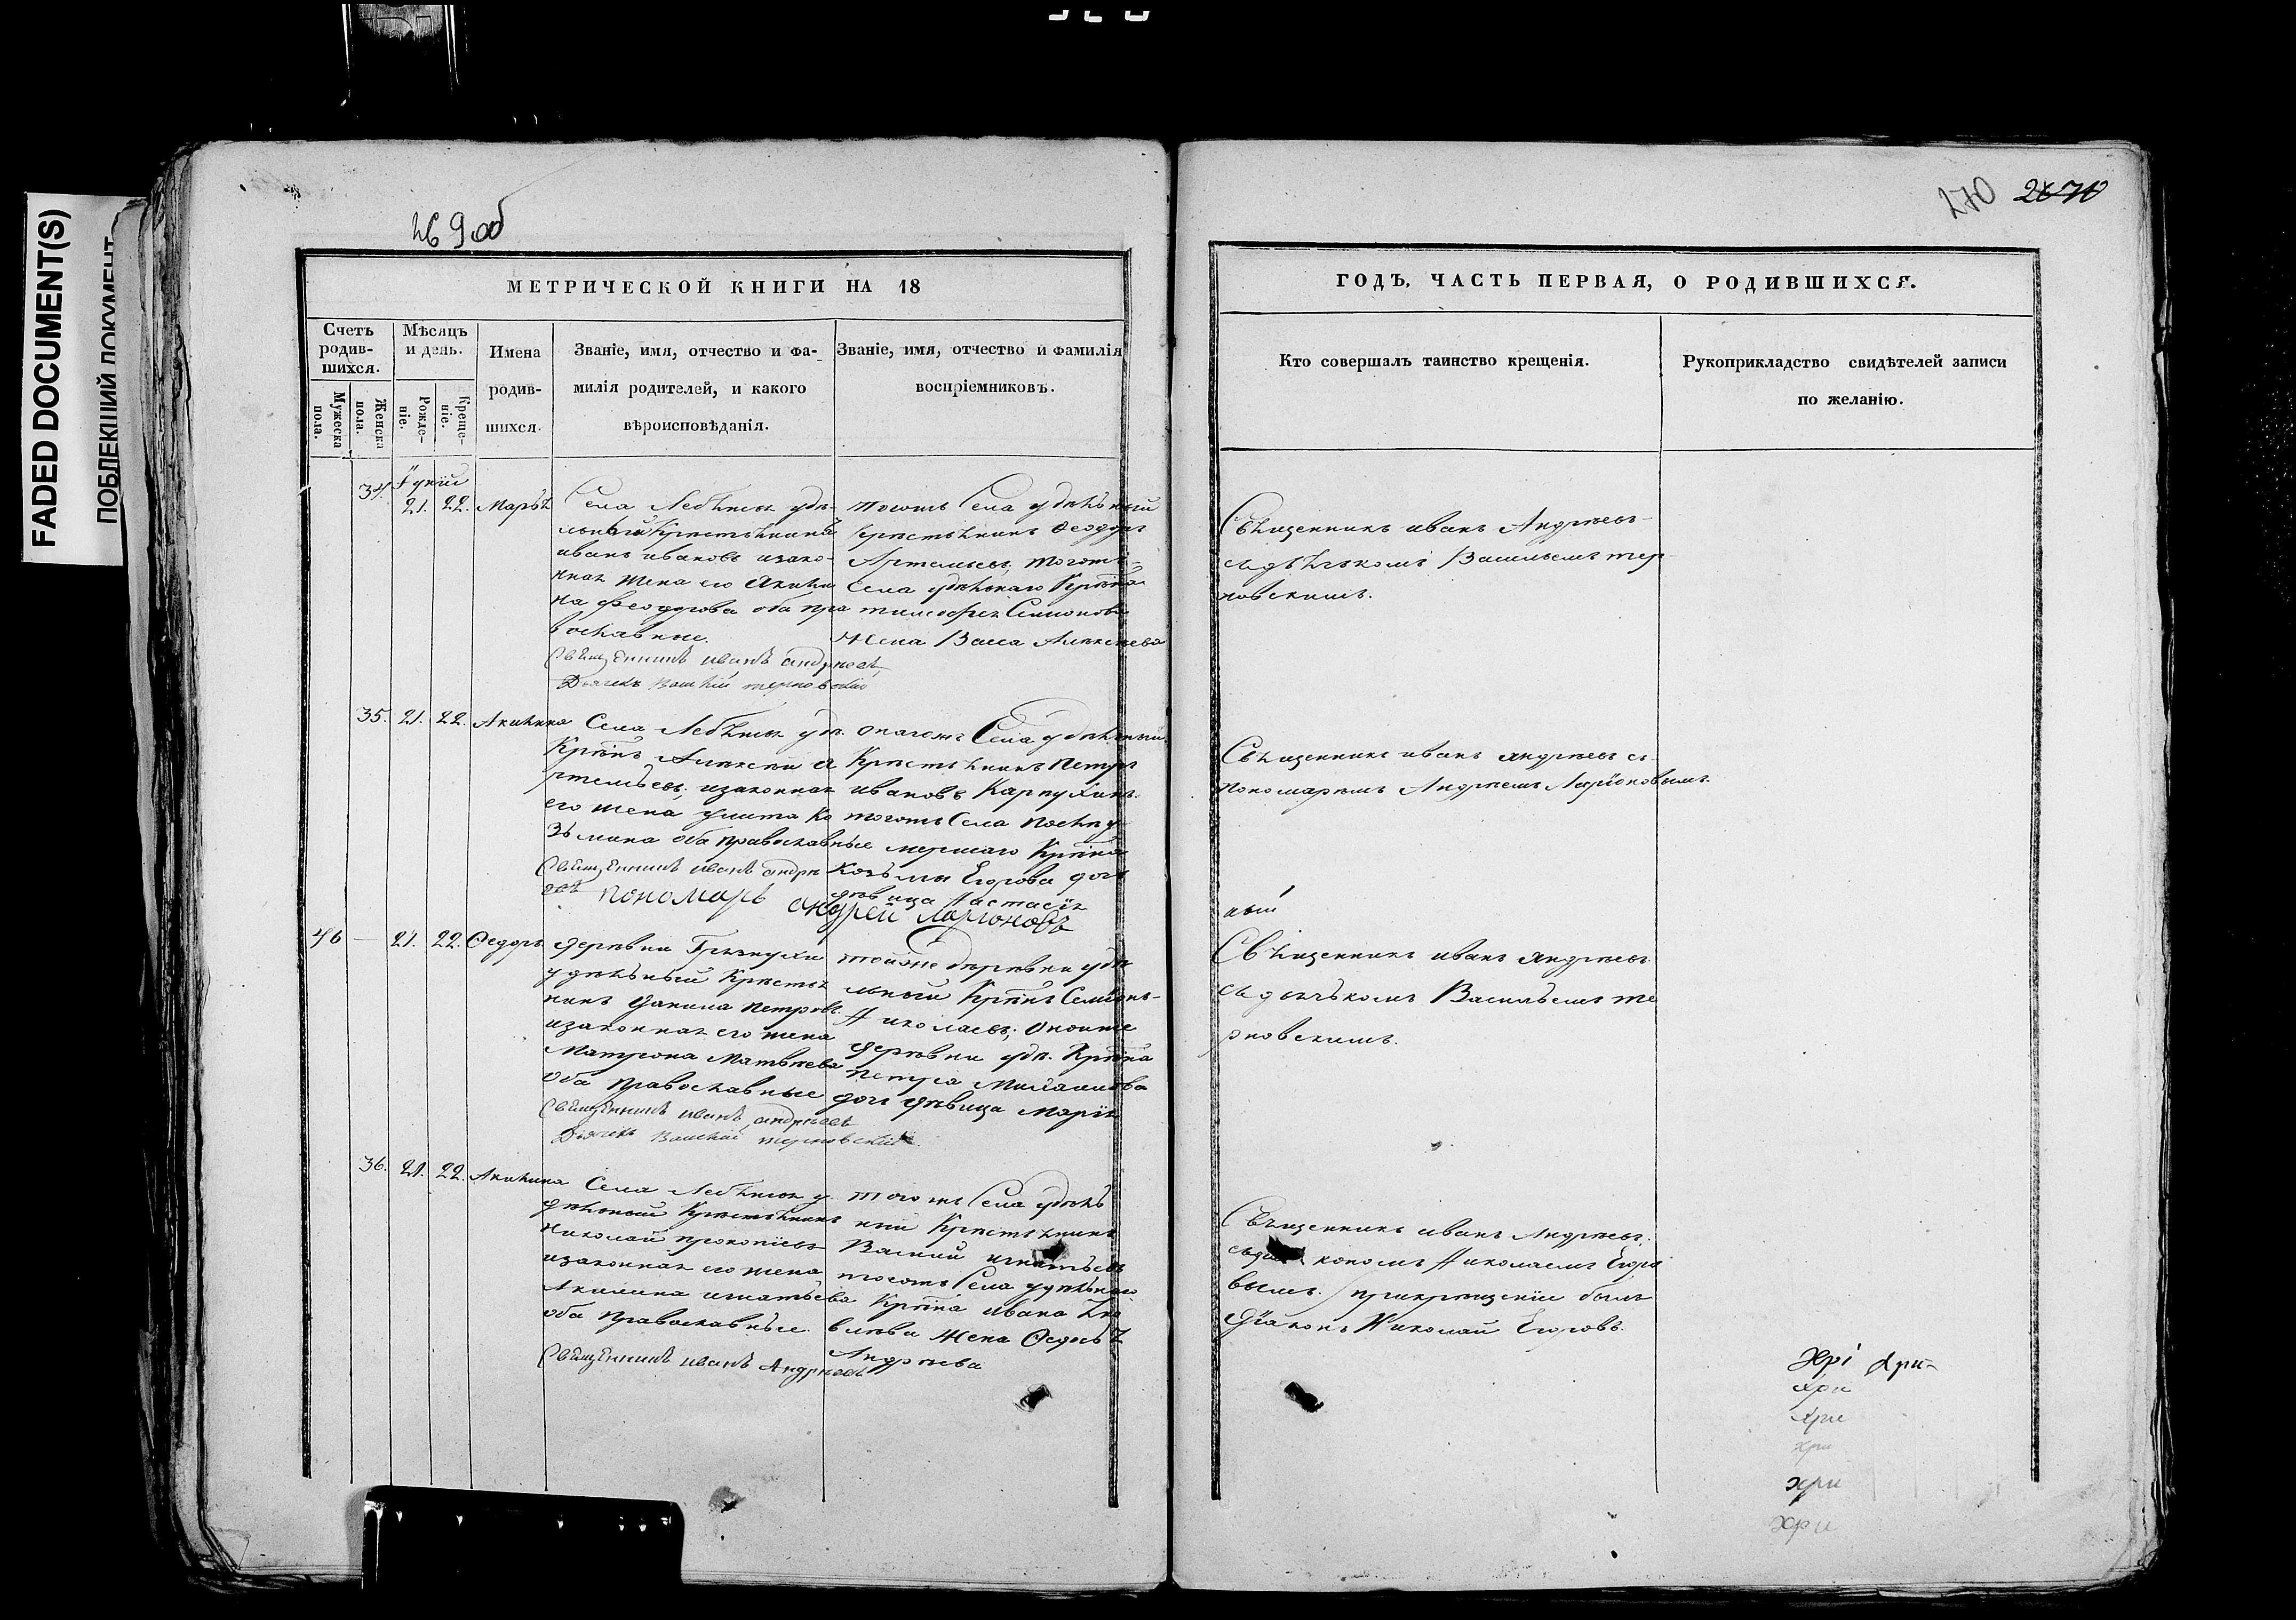 FADED DOCUMENT(S)
ПОБЛЕКШИЙ ДОКУМЕНТ
269 об
МЕТРИЧЕСКОЙ КНИГИ НА 18
Счетъ родившихся.
Мужеска пола.
Женска пола.
Мѣсяцъ и день.
Рожденіе.
Крещеніе.
Имена
родив-
шихся.
Званіе, имя, отчество и фа-
милія родителей, и какого
вѣроисповѣданія.
Званіе, имя, отчество и фамилія
воспріемниковъ.
34. 21. 22. Марья
Села удѣ-
льный Крестьянинъ
иванъ ивановъ изако-
нная жена его Акили
на Феодорова оба пра
вославные.
Священникъ иванъ андреевъ
Дьячекъ Василій терновскій
тогожъ Села удѣльный
крестьянинъ Феодоръ
Артемьевъ, тогожъ
Села удѣльнаго Крѣтна
тимофея Семионова
жена Васса Алексеева
35. 21. 22. Акилина
Села уд.
Крѣтнъ Алексей А
ртемьевъ, изаконная
его жена улита Ко
зьмина оба православные
Священникъ иванъ андре
евъ пономарь андрей ларионовъ
онагожъ Села удѣльный
Крестьянинъ Петръ
ивановъ Карпухинъ.
тогожъ Села
мершаго Крѣтна
Козьмы Егорова доч
девица Настасія
46 — 21. 22. Федоръ
деревни Грязнухи
удѣльный Крестья
нинъ Данила Петровъ.
изаконная его жена
Матрона Матвеева
оба православные
Священникъ иванъ андреевъ
Дьячекъ Василій терновскій
тойже деревни удѣ
льный Крѣтнъ Семионъ
Николаевъ; онойже
деревни удѣ. Крѣтна
петра
доч девица Марія
36. 21. 22. Акилина
Села у
дѣльный Крестьянинъ
Николай прокопіевъ
изаконная его жена
Акилина игнатьева
оба православные.
Священникъ иванъ Андреевъ
тогожъ Села удѣль
ный Крестьянинъ
Василий игнатьевъ
тогожъ Села удѣльнаго
Крѣтна ивана Яко
влева жена Федосья
Андреева
270 2670
ГОДЪ, ЧАСТЬ ПЕРВАЯ, О РОДИВШИХСЯ.
Кто совершалъ таинство крещенія.
Рукоприкладство свидѣтелей записи
по желанію.
Священникъ иванъ Андреевъ
съдьячькомъ Васильемъ тер
новскимъ.
Священникъ иванъ андреевъ съ
пономаремъ Андреемъ Ларіоновымъ
Священникъ иванъ андреевъ
съдьячькомъ Васильемъ те
рновскимъ.
Священникъ иванъ Андреевъ,
кономъ Николаемъ Егоро
вымъ. прикрещеніи былъ
Діаконъ Николай Егоровъ.
хрі хри-
хри
хри
хри
хри
хри